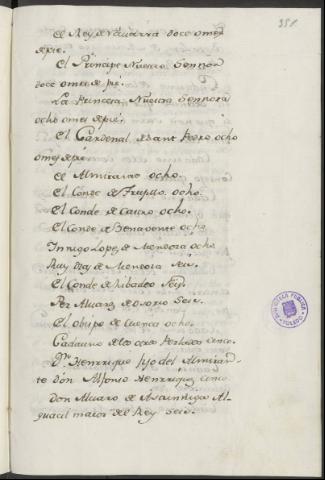 351
El Rey de Navarra doce omes
de pie.
El Principe Nuestro Sennor
doce omes de pie.
La Princesa Nuestra Sennora
ocho omes de pie.
El Cardenal de Sant Pedro ocho
omes de pie
El Almirante ocho.
El Conde de Trugillo ocho.
El Conde de Castro ocho.
El Conde de Benavente ocho
Innigo Lopez de Mendoza ocho
Ruy Diaz de Mendoza Seis.
El Conde de Ribadeo Seis.
Per Alvarez de Osorio Seis.
El obispo de Cuenca ocho.
Cadauno de los otros Perlados cinco.
Dn. Henrrique fijo del Almiran-
te Don Alfonso Henrriquez cinco
Don Alvaro de Al-
guacil maior del Rey Seis.
BIBLIOTECA PUBLICA
TOLEDO